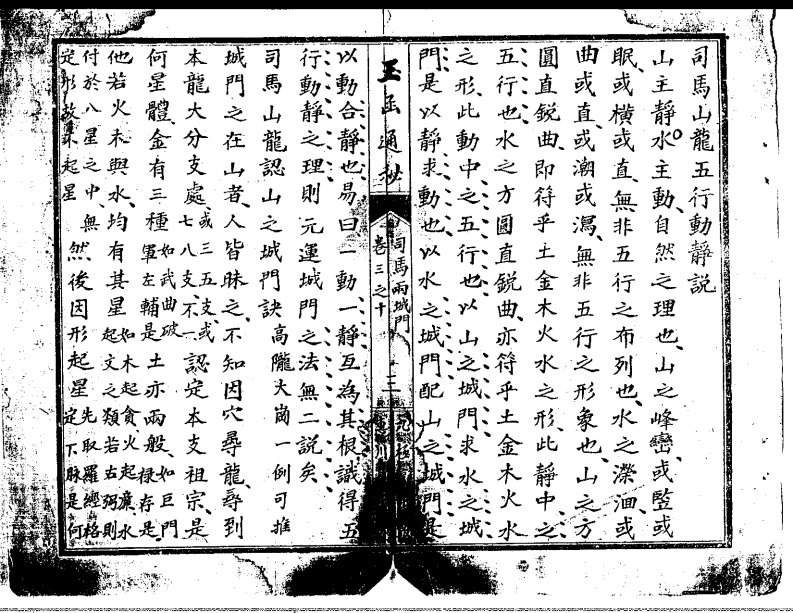 司馬山龍五行動靜説
山主靜水主動自然之理也山之峰巒或豎或
眠或橫或直無非五行之布列也水之濚洄或
曲或直或潮或瀉無非五行之形象也山之方
圓直鋭曲即符乎土金木火水之形此靜中之
五行也水之方圓直鋭曲亦符乎土金木火水
之形此動中之五行也以山之城門求水之城
門是以靜求動也以水之城門配山之城門是
玉函通秘
卷三之十
司馬兩城門
三
以動合靜也易曰一動一靜互為其根識得五
行動靜之理則元運城門之法無二説矣
司馬山龍認山之城門訣 高隴大崗一例可推
城門之在山者人皆昧之不知因穴尋龍尋到
本龍大分支處 或三五支或七八支不一 認定本支祖宗是
何星體金有三種 如武曲破軍左輔是 土亦兩般 如巨門祿存是
他若火木與水均有其星 如木起貪火起廉水起文之類若右弼則
付於八星之中無定形故不起星 然後因形起星 先取羅經格定下脉是何